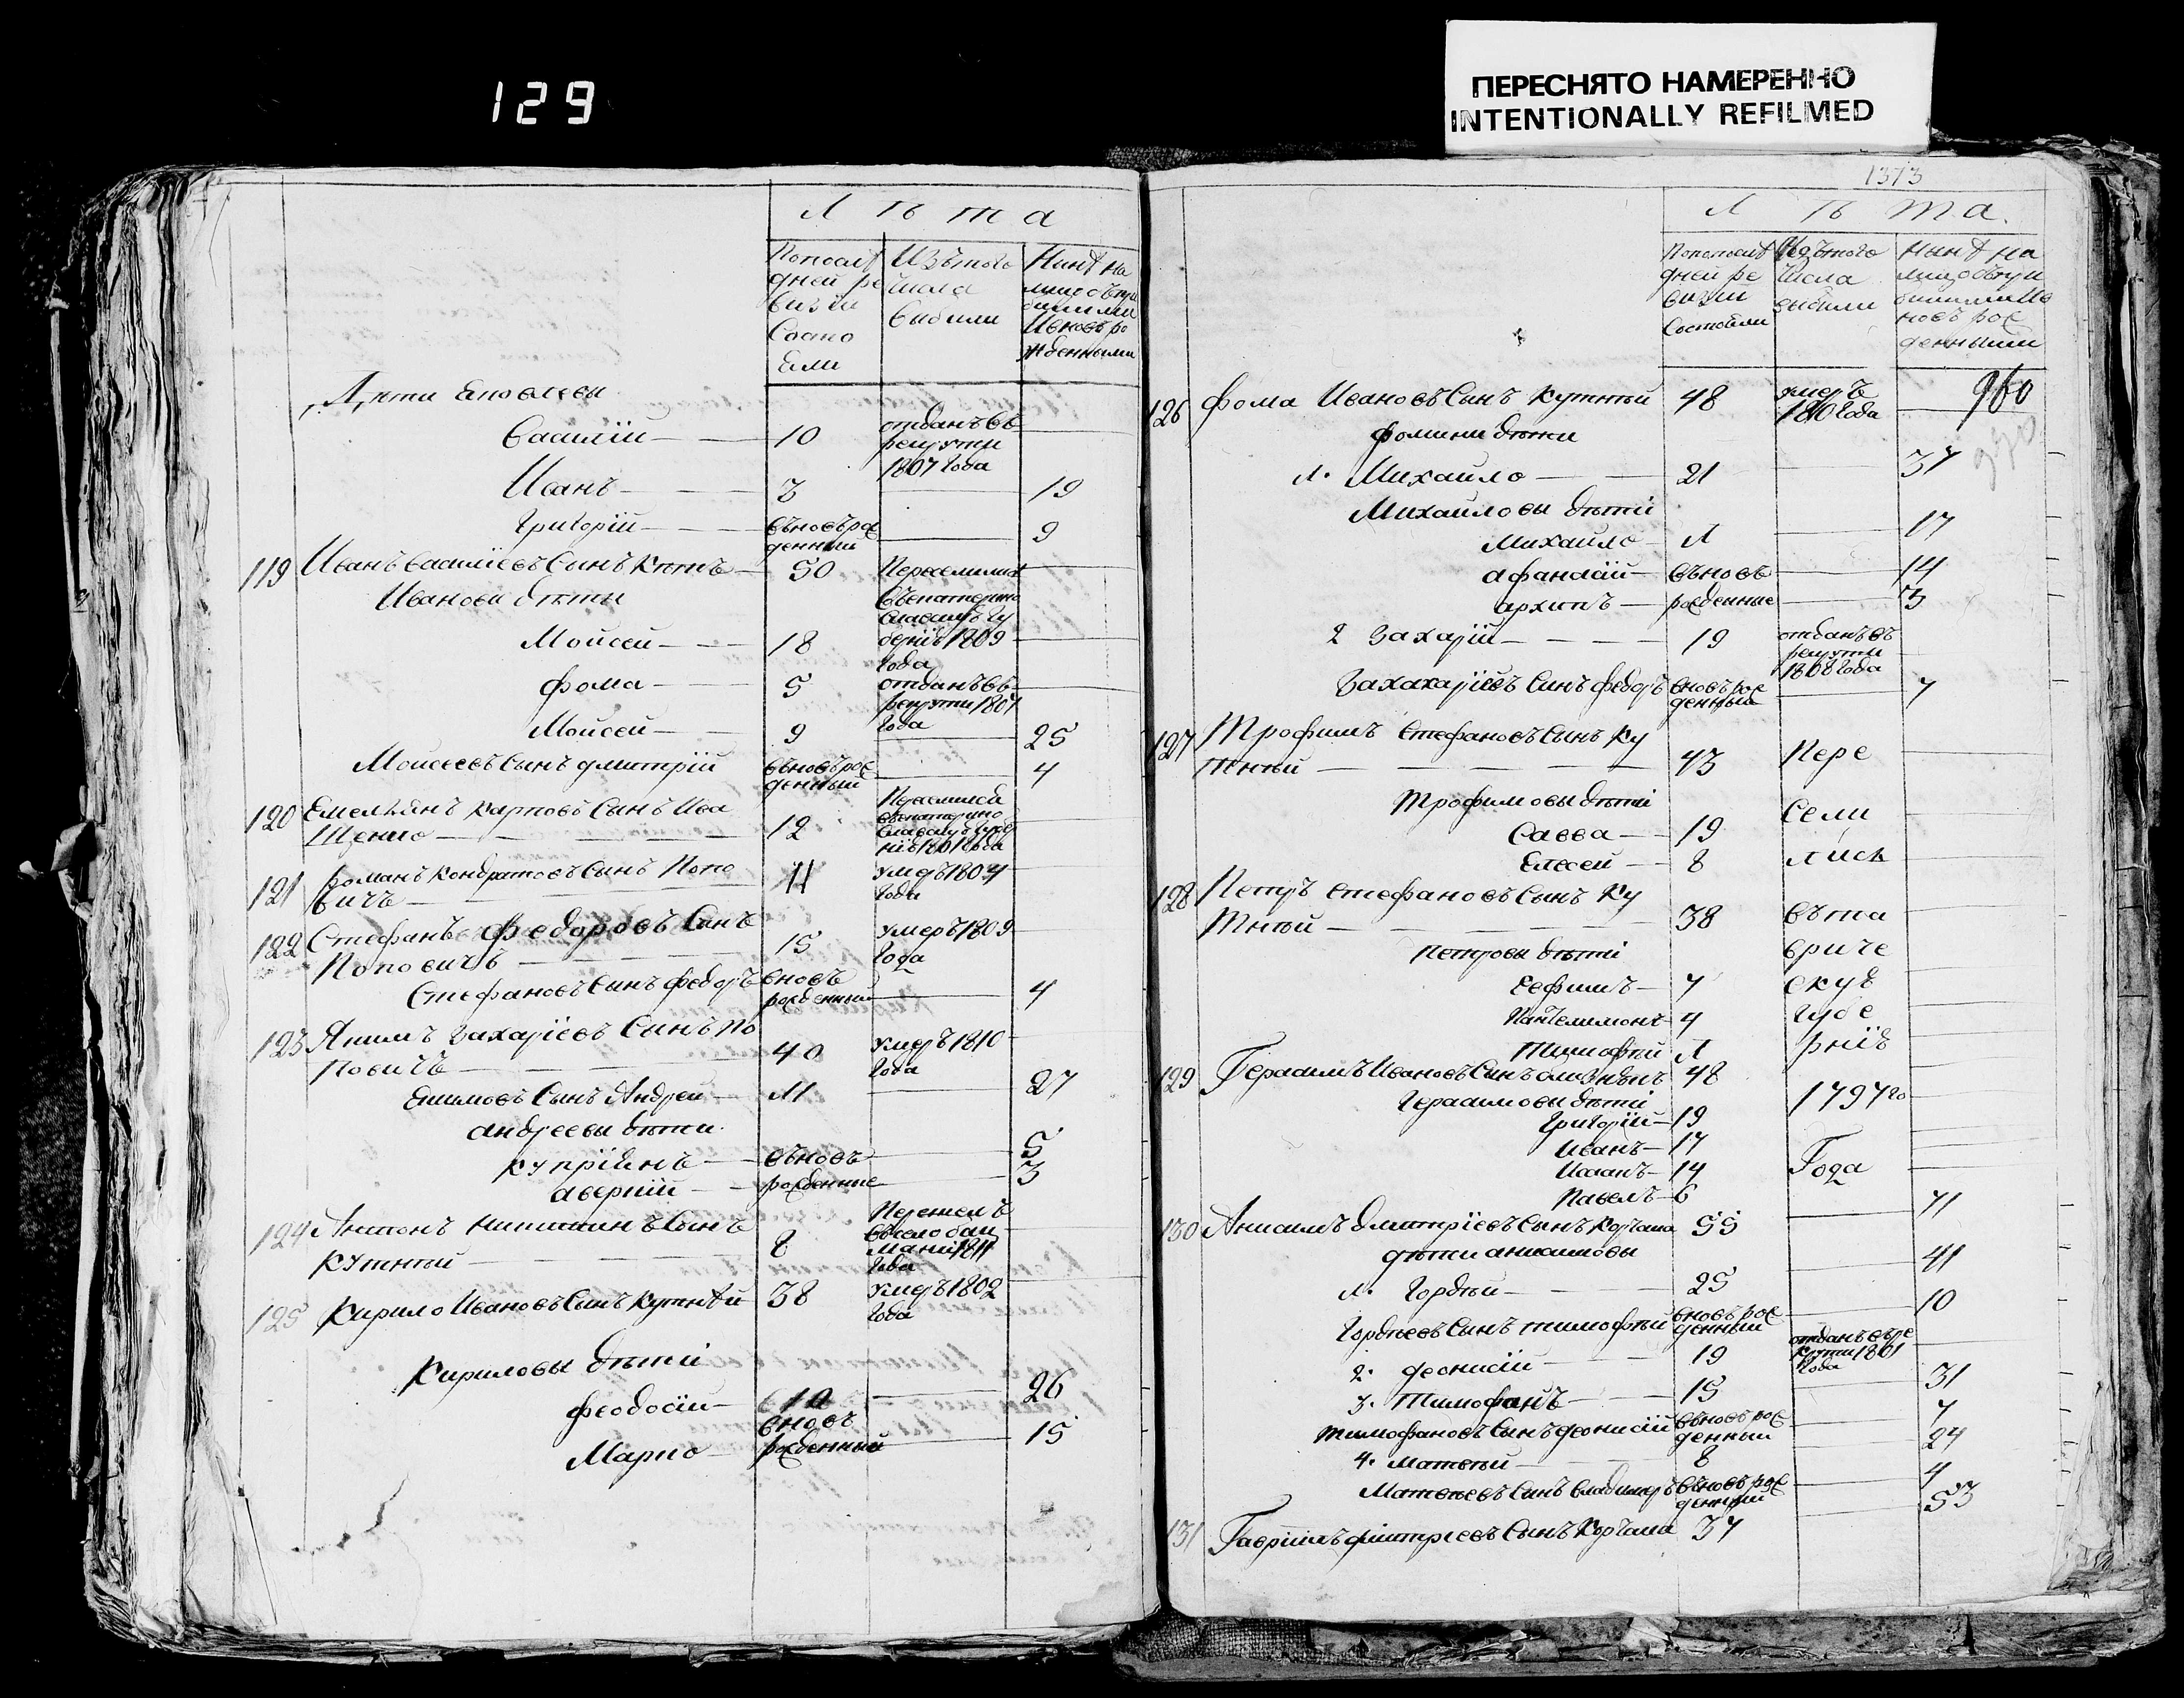 129
ПЕРЕСНЯТО НАМЕРЕННО
INTENTIONALLY REFILMED
Л ѣ т а
Попослѣ
дней ре
визіи
Состо
яли
Изъ того
числа
выбыли
Нынѣ на
лицо съпри
былыми
Ивновь ро
жденными
Дѣти Яковлевы
Василій — 10 отданъ въ
рекруты
1807 Года
Иванъ — 3 — 19
Григорій — вновь рож
денный — 9
119 Иванъ Василіевъ Сынъ — 50 Переселились
Ивановы дѣти въекатерино
славскую гу
Мойсей — 18 берніѣ 1809
Года
Фома — 5 отданъ въ
рекруты 1807
Года
Мойсей — 9 — 25
Мойсеевъ Сынъ Дмитрій вновь рож
денный — 4
120 Емельянъ Карповъ Сынъ Ива
щенко — 12
121 Романъ Кондратовъ Сынъ Попо
вичъ — 11 умеръ 1804
Года
122 Стефанъ Федоровъ Сынъ
Поповичъ — 15 умеръ 1809
Года
Стефановъ Сынъ Федоръ вновь
рожденный — 4
123 Якимъ Захаріевъ Сынъ По
повичъ — 40 умеръ 1810
Года
Екимовъ Сынъ Андрей — 11 — 27
Андреевы дѣти
Купріянъ — вновь — 5
Аверкій — рожденные — 3
124 Антонъ Никитинъ Сынъ
Кутній — 8 1811
Года
125 Кирило Ивановъ Сынъ Кутнѣй 38 умеръ 1802
Года
Кириловы дѣти
Феодосій — 10 — 26
Марко — вновь
рожденный — 15
1373
Л ѣ т а.
Попослѣ
дней ре
визіи
Состояли
Изъ того
числа
выбыли
Нынѣ на
лицо съпри
былыми Ив
новь рож
денными
126 Фома Ивановъ Сынъ Кутній 48 умеръ
1810 Года — 960
Фомины дѣти
1. Михайло — 21 — 37
Михайловы дѣти
Михайло — 1 — 17
Афанасій — вновь — 14
Архипъ — рожденные — 3
2 Захарій — 19 отданъ въ
рекруты
1808 Года
Захахаріевъ Сынъ Федоръ вновь рож
денный — 7
127 Трофимъ Стефановъ Сынъ Ку
тній — 43 Пере
Трофимовы дѣти
Савва — 19 Сели
Елесей — 8 лись
128 Петръ Стефановъ Сынъ Ку
тній — 38 въта
Петровы дѣти вриче
Евфимъ — 7 скую
Пантелимонъ — 4 Губе
Тимофѣй 1 рніѣ
129 Герасимъ Ивановъ Сынъ 48
Герасимовы дѣти 1797го
Григорій — 19
Иванъ — 17
14 Года
Павелъ — 6
130 Анисимъ Дмитріевъ Сынъ Корчака 55 — 71
дѣти Анисимовы
1. Гордѣй — 25 — 41
Гордѣевъ Сынъ Тимофѣй вновь рож
денный — 10
2. Деонисій — 19 отданъ въре
круты 1801
Года
3. Тимофанъ — 15 — 31
Тимофановъ Сынъ Деонисій вновь рож
денный — 7
4. Матвѣй — 8 — 24
Матвѣевъ Сынъ Владимеръ вновь рож
денный — 4
131 Гавріилъ Дмитріевъ Сынъ Корчака 37 — 53